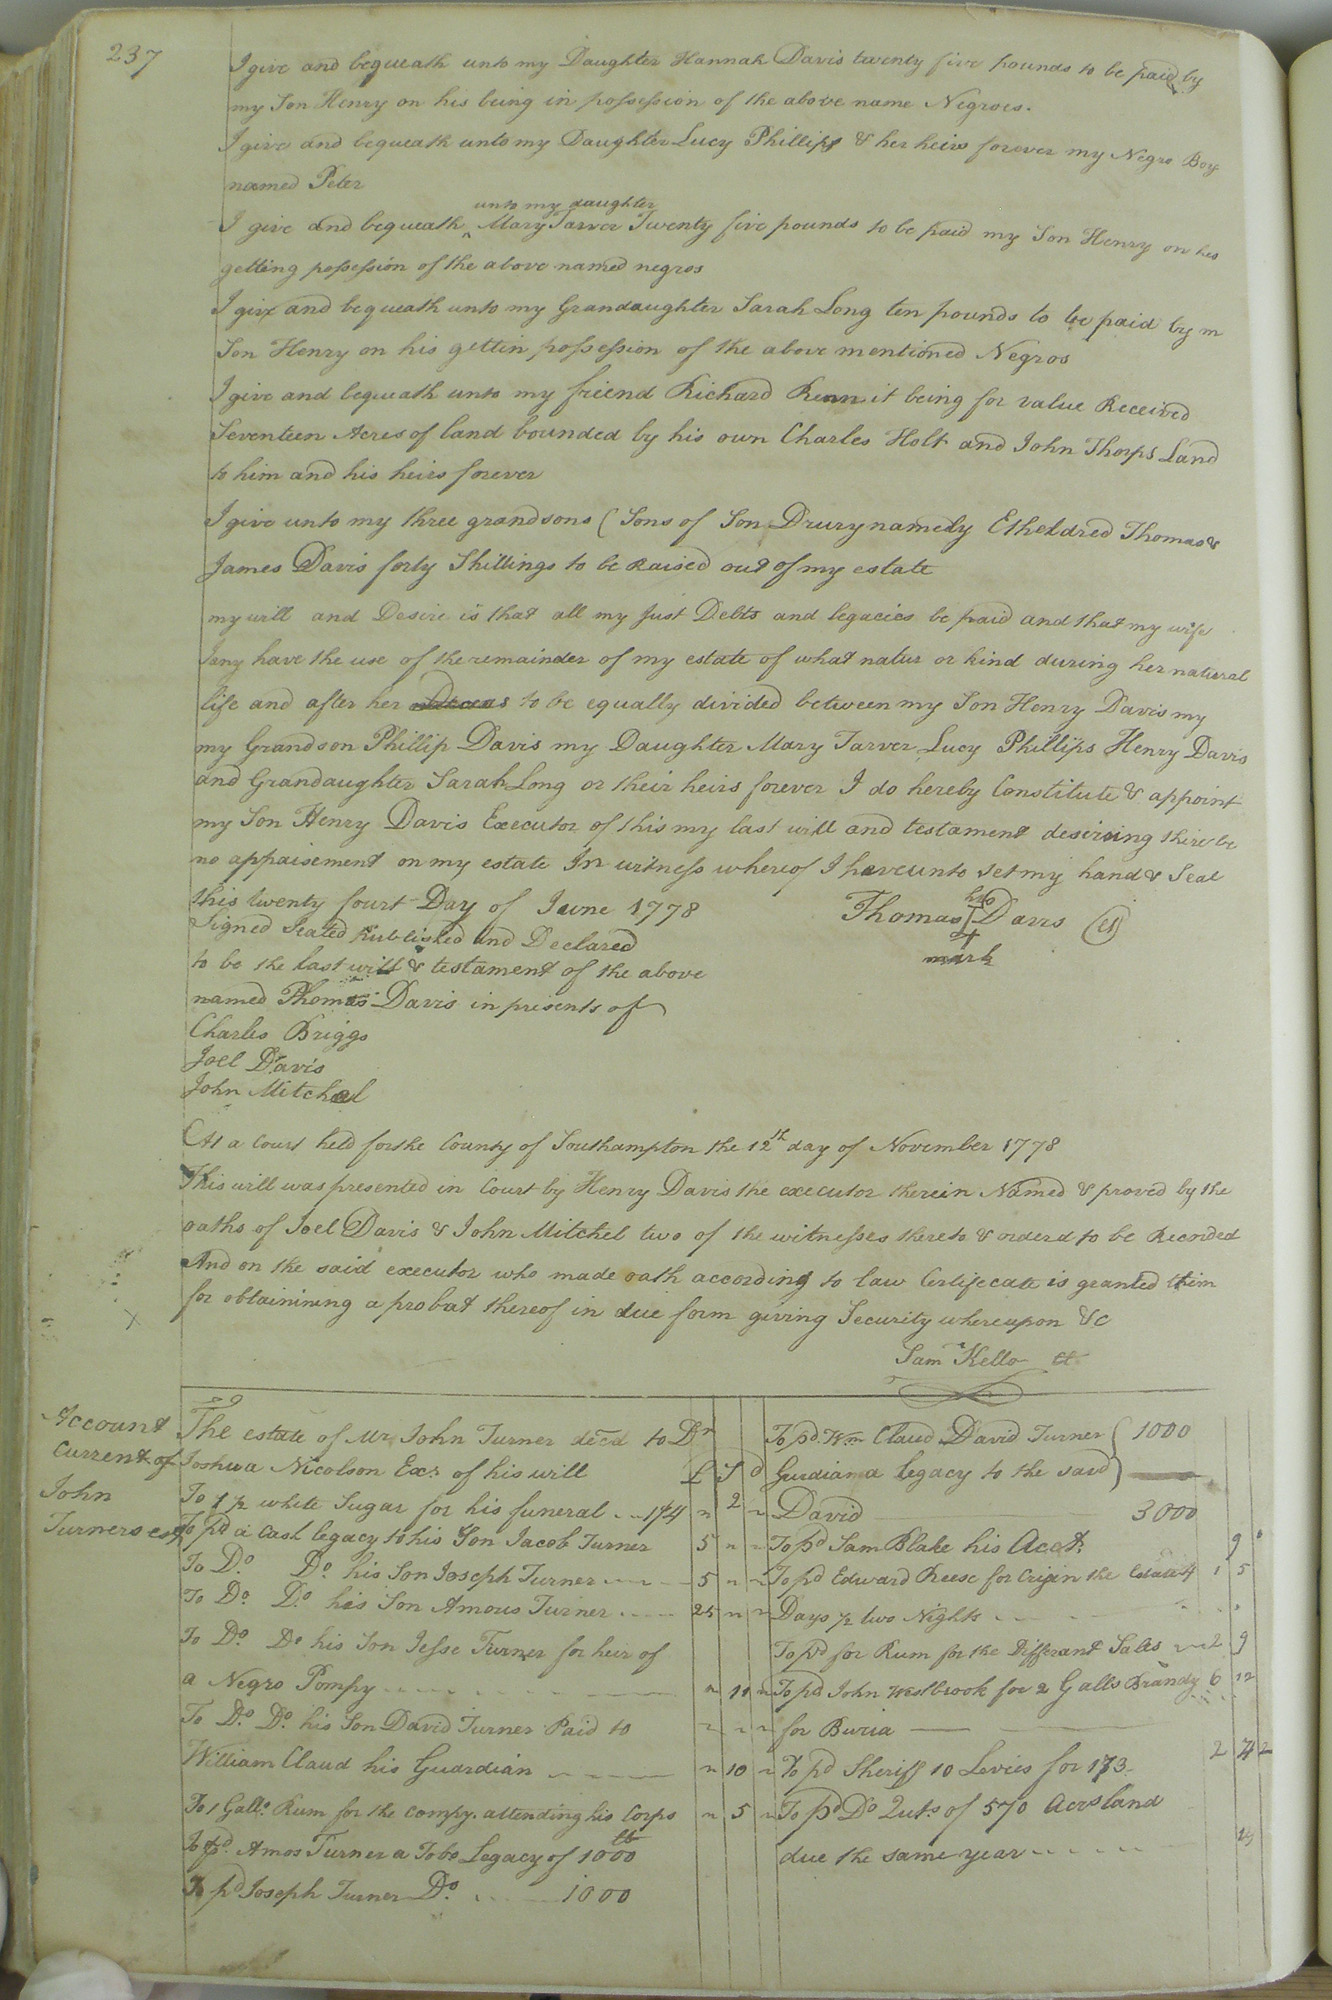 237
I give and bequeath unto my Daughter Hannah Davis twenty five pounds to be paid by
my Son Henry on his being in possession of the above name Negroes.
I give and bequeath unto my Daughter Lucy Phillips & her heirs forever my Negro Boy
named Peter
unto my daughter
I give and bequeath ^ Mary Tarver Twenty five pounds to be paid my Son Henry on his
getting possession of the above named negros
I give and bequeath unto my Grandaughter Sarah Long ten pounds to be paid by m
Son Henry on his gettin possession of the above mentioned Negros
I give and bequeath unto my friend Richard Renn it being for value Received
Seventeen Acres of land bounded by his own Charles Holt and John Thorps Land
to him and his heirs forever
I give unto my three grandsons (Sons of Son Drury namely Etheldred Thomas &
James Davis forty Shillings to be Raised out of my estate
my will and Desire is that all my Just Debts and legacies be paid and that my wife
Jany have the use of the remainder of my estate of what natur or kind during her natural
life and after her to be equally divided between my Son Henry Davis my
my Grandson Phillip Davis my Daughter Mary Tarver Lucy Phillips Henry Davis
and Grandaughter Sarah Long or their heirs forever I do hereby Constitute & appoint
my Son Henry Davis Executor of this my last will and testament desireing there be
no appaisement on my estate In witness whereof I have unto set my hand & Seal
this twenty fourt Day of June 1778
his
Thomas Davis (LS)
mark
Signed Sealed Published and Declared
to be the last will & testament of the above
named Thomas Davis in presents of
Charles Briggs
Joel Davis
John Mitchel
At a Court held for the County of Southampton the 12th day of November 1778
This will was presented in Court by Henry Davis the executor therein Named & proved by the
oaths of Joel Davis & John Mitchel two of the witnesses thereto & orderd to be Recorded
And on the said executor who made oath according to law Certifecate is granted him
for obtainining a probat thereof in due form giving Security whereupon &c
Saml Kello
Account
Current of
John
Turners est
The estate of Mr John Turner decd to Dr
Joshua Nicolson Exr of his will £ S d
To 1 p white Sugar for his funeral 2
To pd a Cash legacy to his Son Jacob Turner 5 " "
To Do Do his Son Joseph Turner 5 " "
To Do Do his Son Amous Turner 25 " "
To Do Do his Son Jesse Turner for heir of
a Negro Pompy " 11 "
To Do Do his Son David Turner Paid to " " "
William Claud his Guardian " 10 "
To 1 Gallo Rum for the compy attending his Corps " 5 "
To pd Amos Turner a Tobo Legacy of 1000 lb
To pd Joseph Turner Do 1000
To pd Wm Claud David Turner 1000
Gurdian a legacy to the said
David 3000
To pd Sam Blake his Acct. 9
To pd Edward Reese for Crijin the Estate 4 1 5
Days p two Nights
To pd for Rum for the Differant Sales 2 9
To pd John Westbrook for 2 Galls Brandy 6 12
for Buria
To pd Sheriff 10 Levies for 173 2 4 2
To pd Do Quts of 570 Acrs land
due the same year